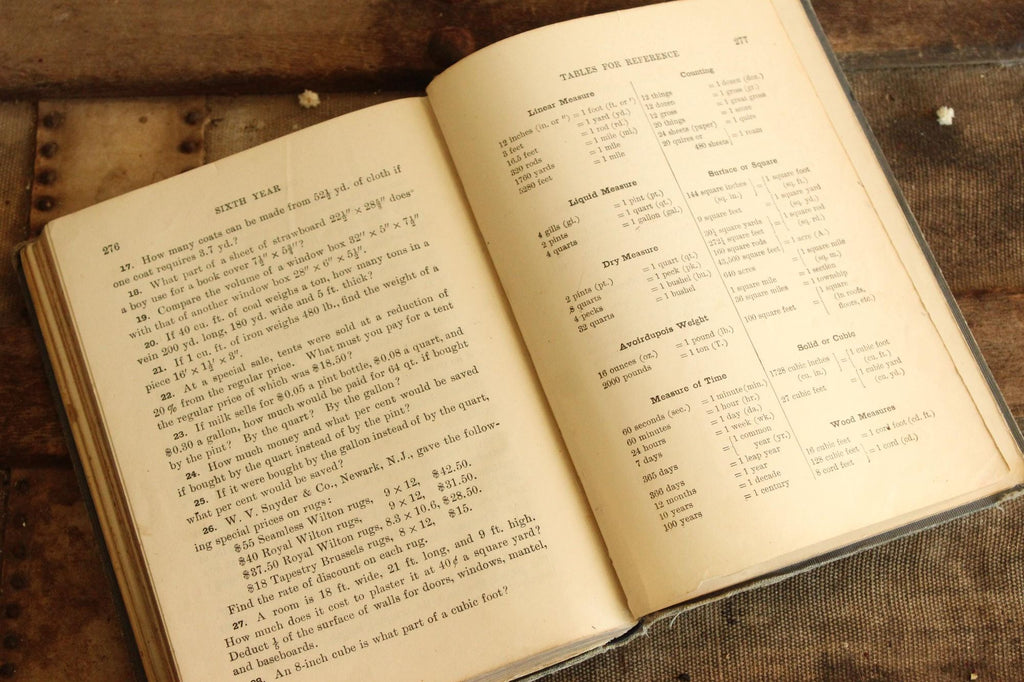 276
SIXTH YEAR
17. How many coats can be made from 52½ yd. of cloth if
one coat requires 3.7 yd.?
18. What part of a sheet of strawboard 22½″ × 28½″ does
a boy use for a book cover 7½″ × 5¾″?
19. Compare the volume of a window box 32″ × 5″ × 7½″
with that of another window box 28″ × 6″ × 5½″.
20. If 40 cu. ft. of coal weighs a ton, how many tons in a
vein 200 yd. long, 180 yd. wide and 5 ft. thick?
21. If 1 cu. ft. of iron weighs 480 lb., find the weight of a
piece 16′ × 1½′ × 3″.
22. At a special sale, tents were sold at a reduction of
20% from the regular price. What must you pay for a tent
the regular price of which was $18.50?
23. If milk sells for $0.05 a pint bottle, $0.08 a quart, and
$0.30 a gallon, how much would be paid for 64 qt. if bought
by the pint? By the quart? By the gallon?
24. How much money and what per cent would be saved
if bought by the quart instead of by the pint?
25. If it were bought by the gallon instead of by the quart,
what per cent would be saved?
26. W. V. Snyder & Co., Newark, N.J., gave the follow-
ing special prices on rugs:
$55 Seamless Wilton rugs, 9 × 12, $42.50.
$40 Royal Wilton rugs, 9 × 12, $31.50.
$37.50 Royal Wilton rugs, 8.3 × 10.6, $28.50.
$18 Tapestry Brussels rugs, 8 × 12, $15.
Find the rate of discount on each rug.
27. A room is 18 ft. wide, 21 ft. long, and 9 ft. high.
How much does it cost to plaster it at 40¢ a square yard?
Deduct ⅙ of the surface of walls for doors, windows, mantel,
and baseboards.
An 8-inch cube is what part of a cubic foot?
TABLES FOR REFERENCE
277
Linear Measure
12 inches (in. or ″) = 1 foot (ft. or ′)
3 feet = 1 yard (yd.)
16.5 feet = 1 rod (rd.)
320 rods = 1 mile (mi.)
1760 yards = 1 mile
5280 feet = 1 mile
Liquid Measure
4 gills (gi.) = 1 pint (pt.)
2 pints = 1 quart (qt.)
4 quarts = 1 gallon (gal.)
Dry Measure
2 pints (pt.) = 1 quart (qt.)
8 quarts = 1 peck (pk.)
4 pecks = 1 bushel (bu.)
32 quarts = 1 bushel
Avoirdupois Weight
16 ounces (oz.) = 1 pound (lb.)
2000 pounds = 1 ton (T.)
Measure of Time
60 seconds (sec.) = 1 minute (min.)
60 minutes = 1 hour (hr.)
24 hours = 1 day (da.)
7 days = 1 week (wk.)
365 days = 1 common
year (yr.)
366 days = 1 leap year
12 months = 1 year
10 years = 1 decade
100 years = 1 century
Counting
12 things = 1 dozen (doz.)
12 dozen = 1 gross (gr.)
12 gross = 1 great gross
20 things = 1 score
24 sheets (paper) = 1 quire
20 quires or
480 sheets } = 1 ream
Surface or Square
144 square inches
(sq. in.) } = 1 square foot
(sq. ft.)
9 square feet = 1 square yard
(sq. yd.)
30¼ square yards
272¼ square feet } = 1 square rod
(sq. rd.)
160 square rods
43,560 square feet } = 1 acre (A.)
640 acres = 1 square mile
(sq. mi.)
1 square mile = 1 section
36 square miles = 1 township
100 square feet = 1 square
(in roofs,
floors, etc.)
Solid or Cubic
1728 cubic inches
(cu. in.) } = 1 cubic foot
(cu. ft.)
27 cubic feet = 1 cubic yard
(cu. yd.)
Wood Measures
16 cubic feet = 1 cord foot (cd. ft.)
128 cubic feet
8 cord feet } = 1 cord (cd.)